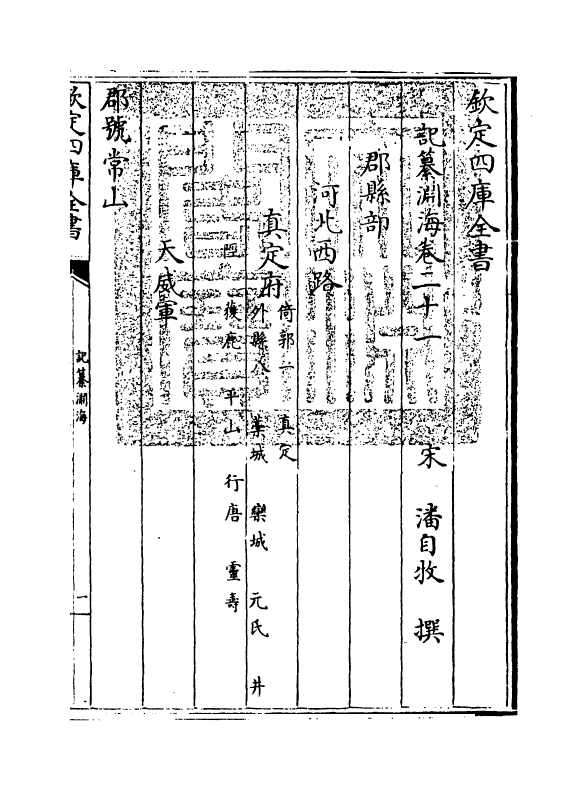 欽定四庫全書
記纂淵海卷二十一
宋 潘自牧 撰
郡縣部
河北西路
真定府
倚郭一 真定
外縣八 藁城 欒城 元氏 井
陘 獲鹿 平山 行唐 靈壽
天威軍
郡號常山
欽定四庫全書
記纂淵海
一